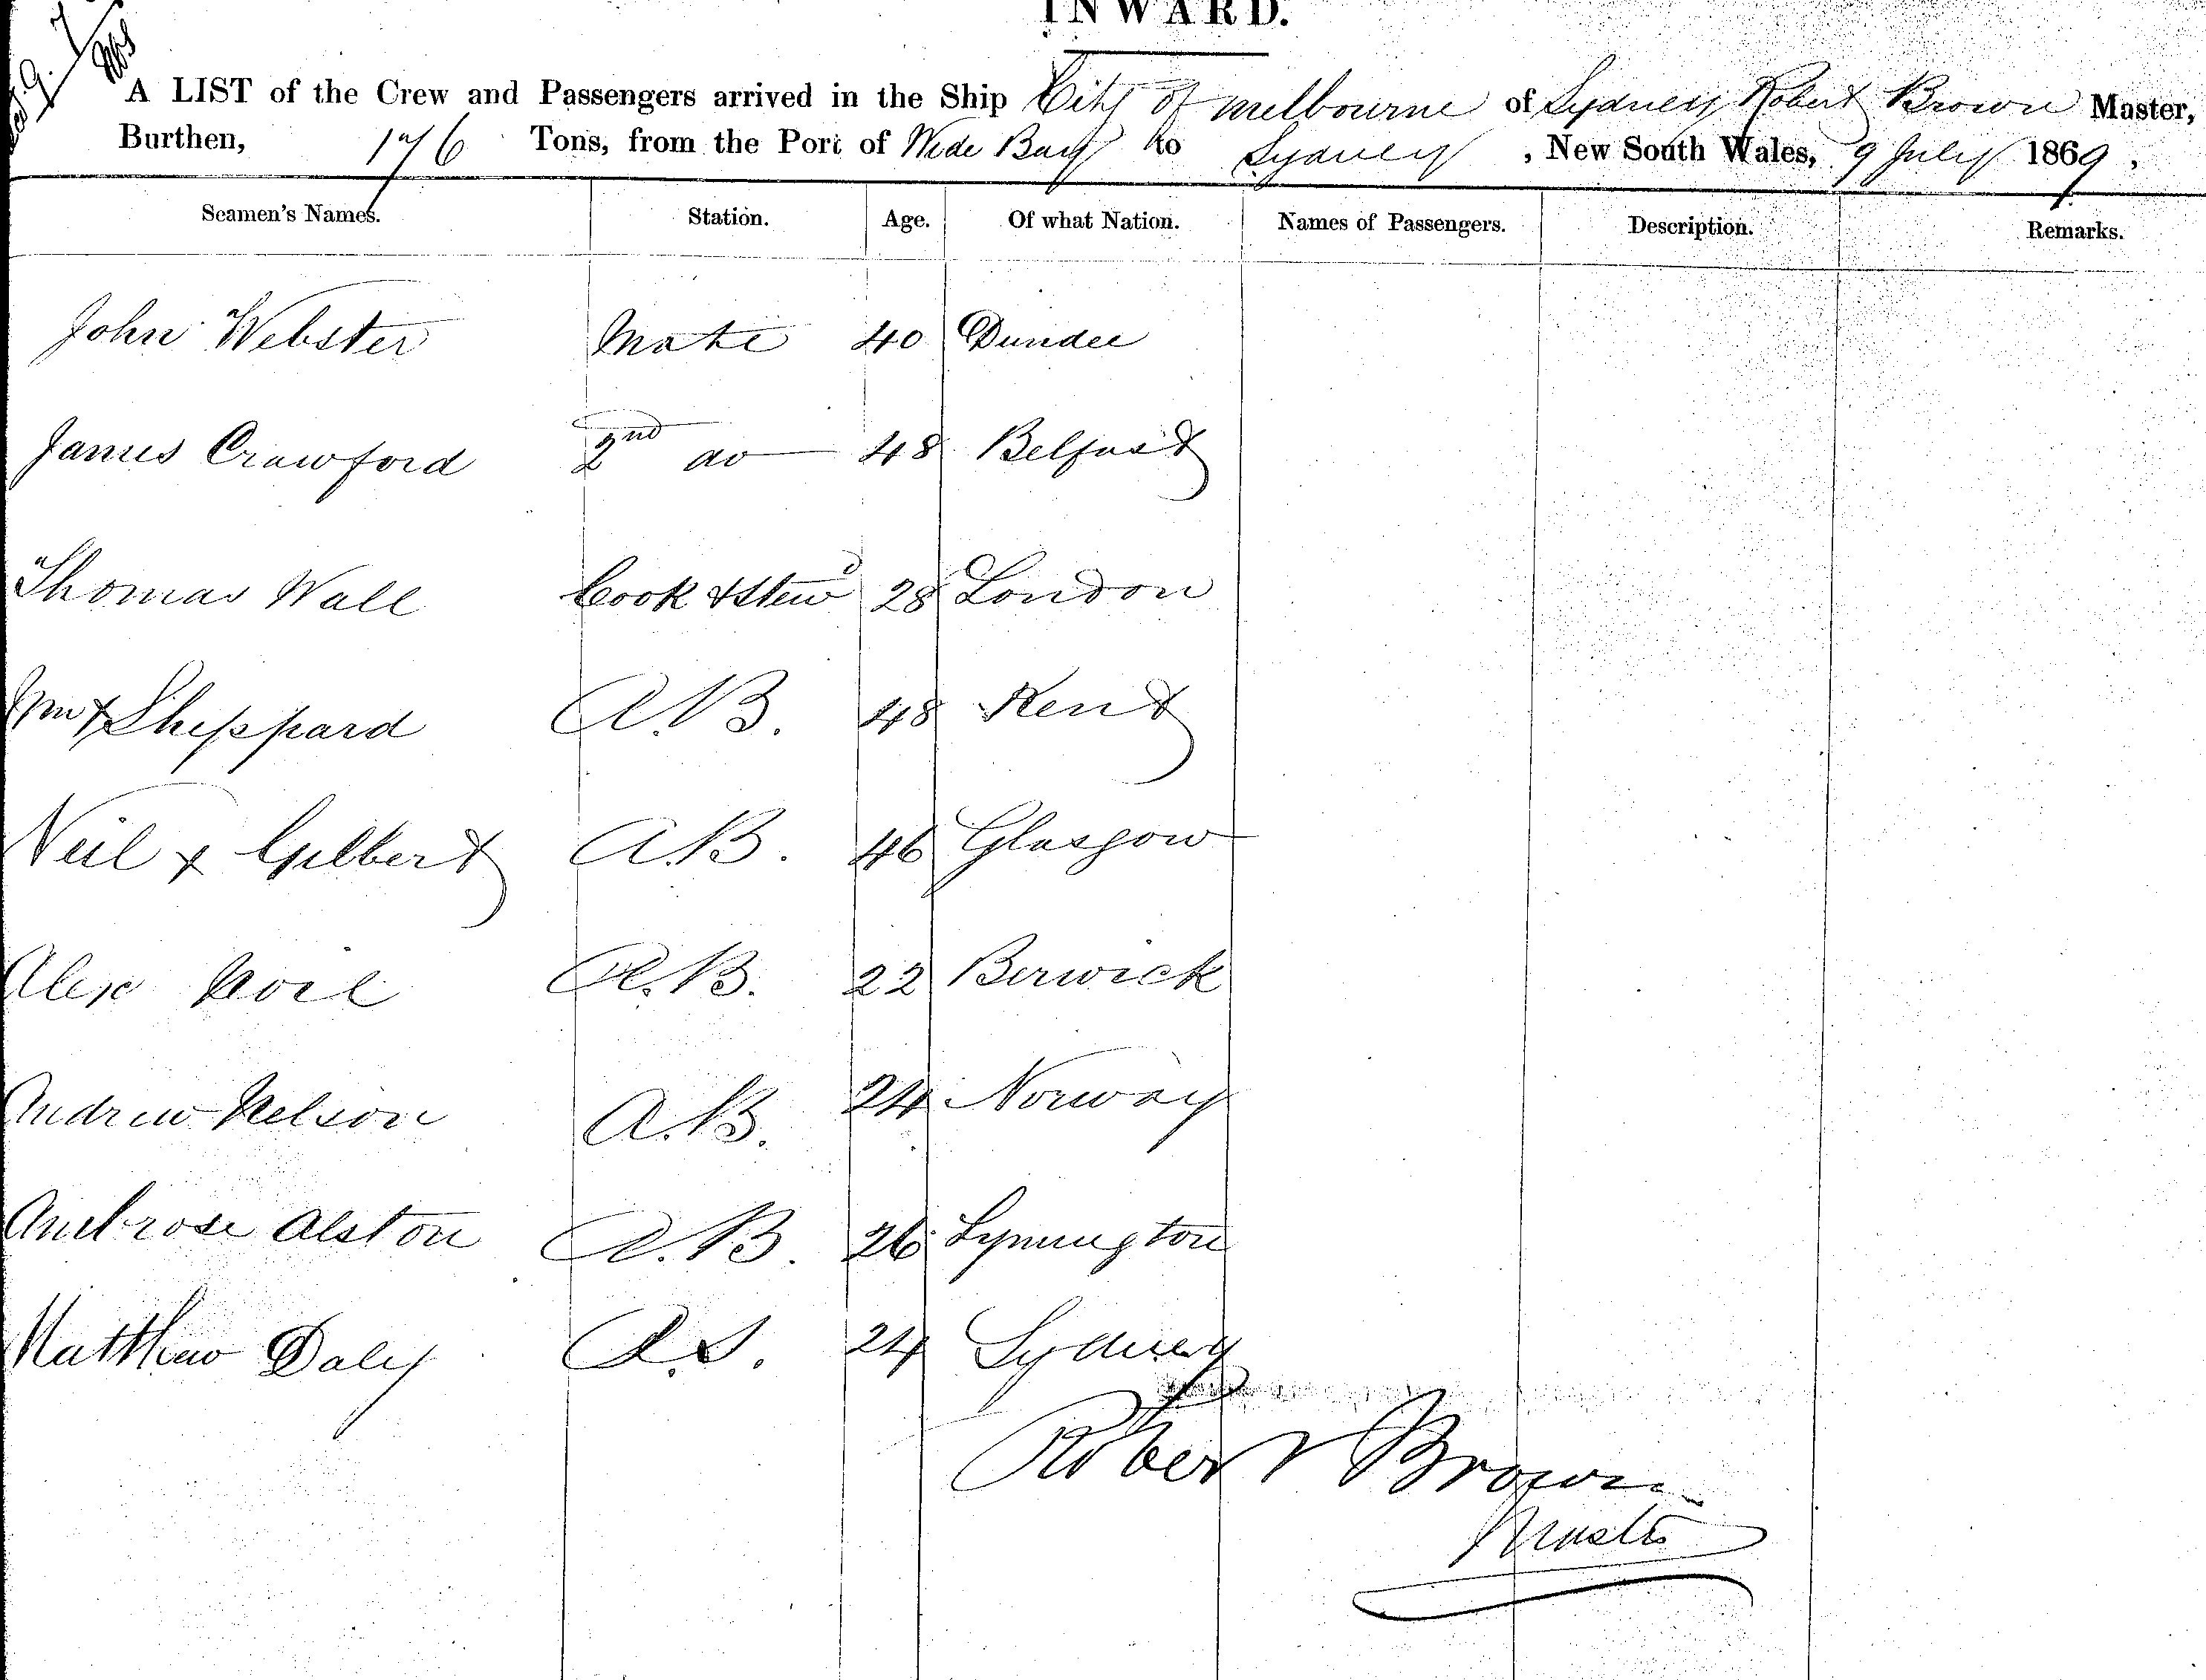 INWARD.
A LIST of the Crew and Passengers arrived in the Ship City of Melbourne of Sydney Robert Brown Master,
Burthen, 176 Tons, from the Port of Wide Bay to Sydney, New South Wales, 9 July 1869,
Seamen's Names. Station. Age. Of what Nation. Names of Passengers. Description. Remarks.
John Webster Mate 40 Dundee
James Crawford 2nd do 48 Belfast
Thomas Wall Cook & Stewd 28 London
Wm x Sheppard A.B. 48 Kent
Neil x Gilbert A.B. 46 Glasgow
Alex A.B. 22 Berwick
Andrew Nelson A.B. 24 Norway
Ambrose Alston A.B. 26 Lymington
Matthew Daly O.S. 24 Sydney
Robert Brown
Master